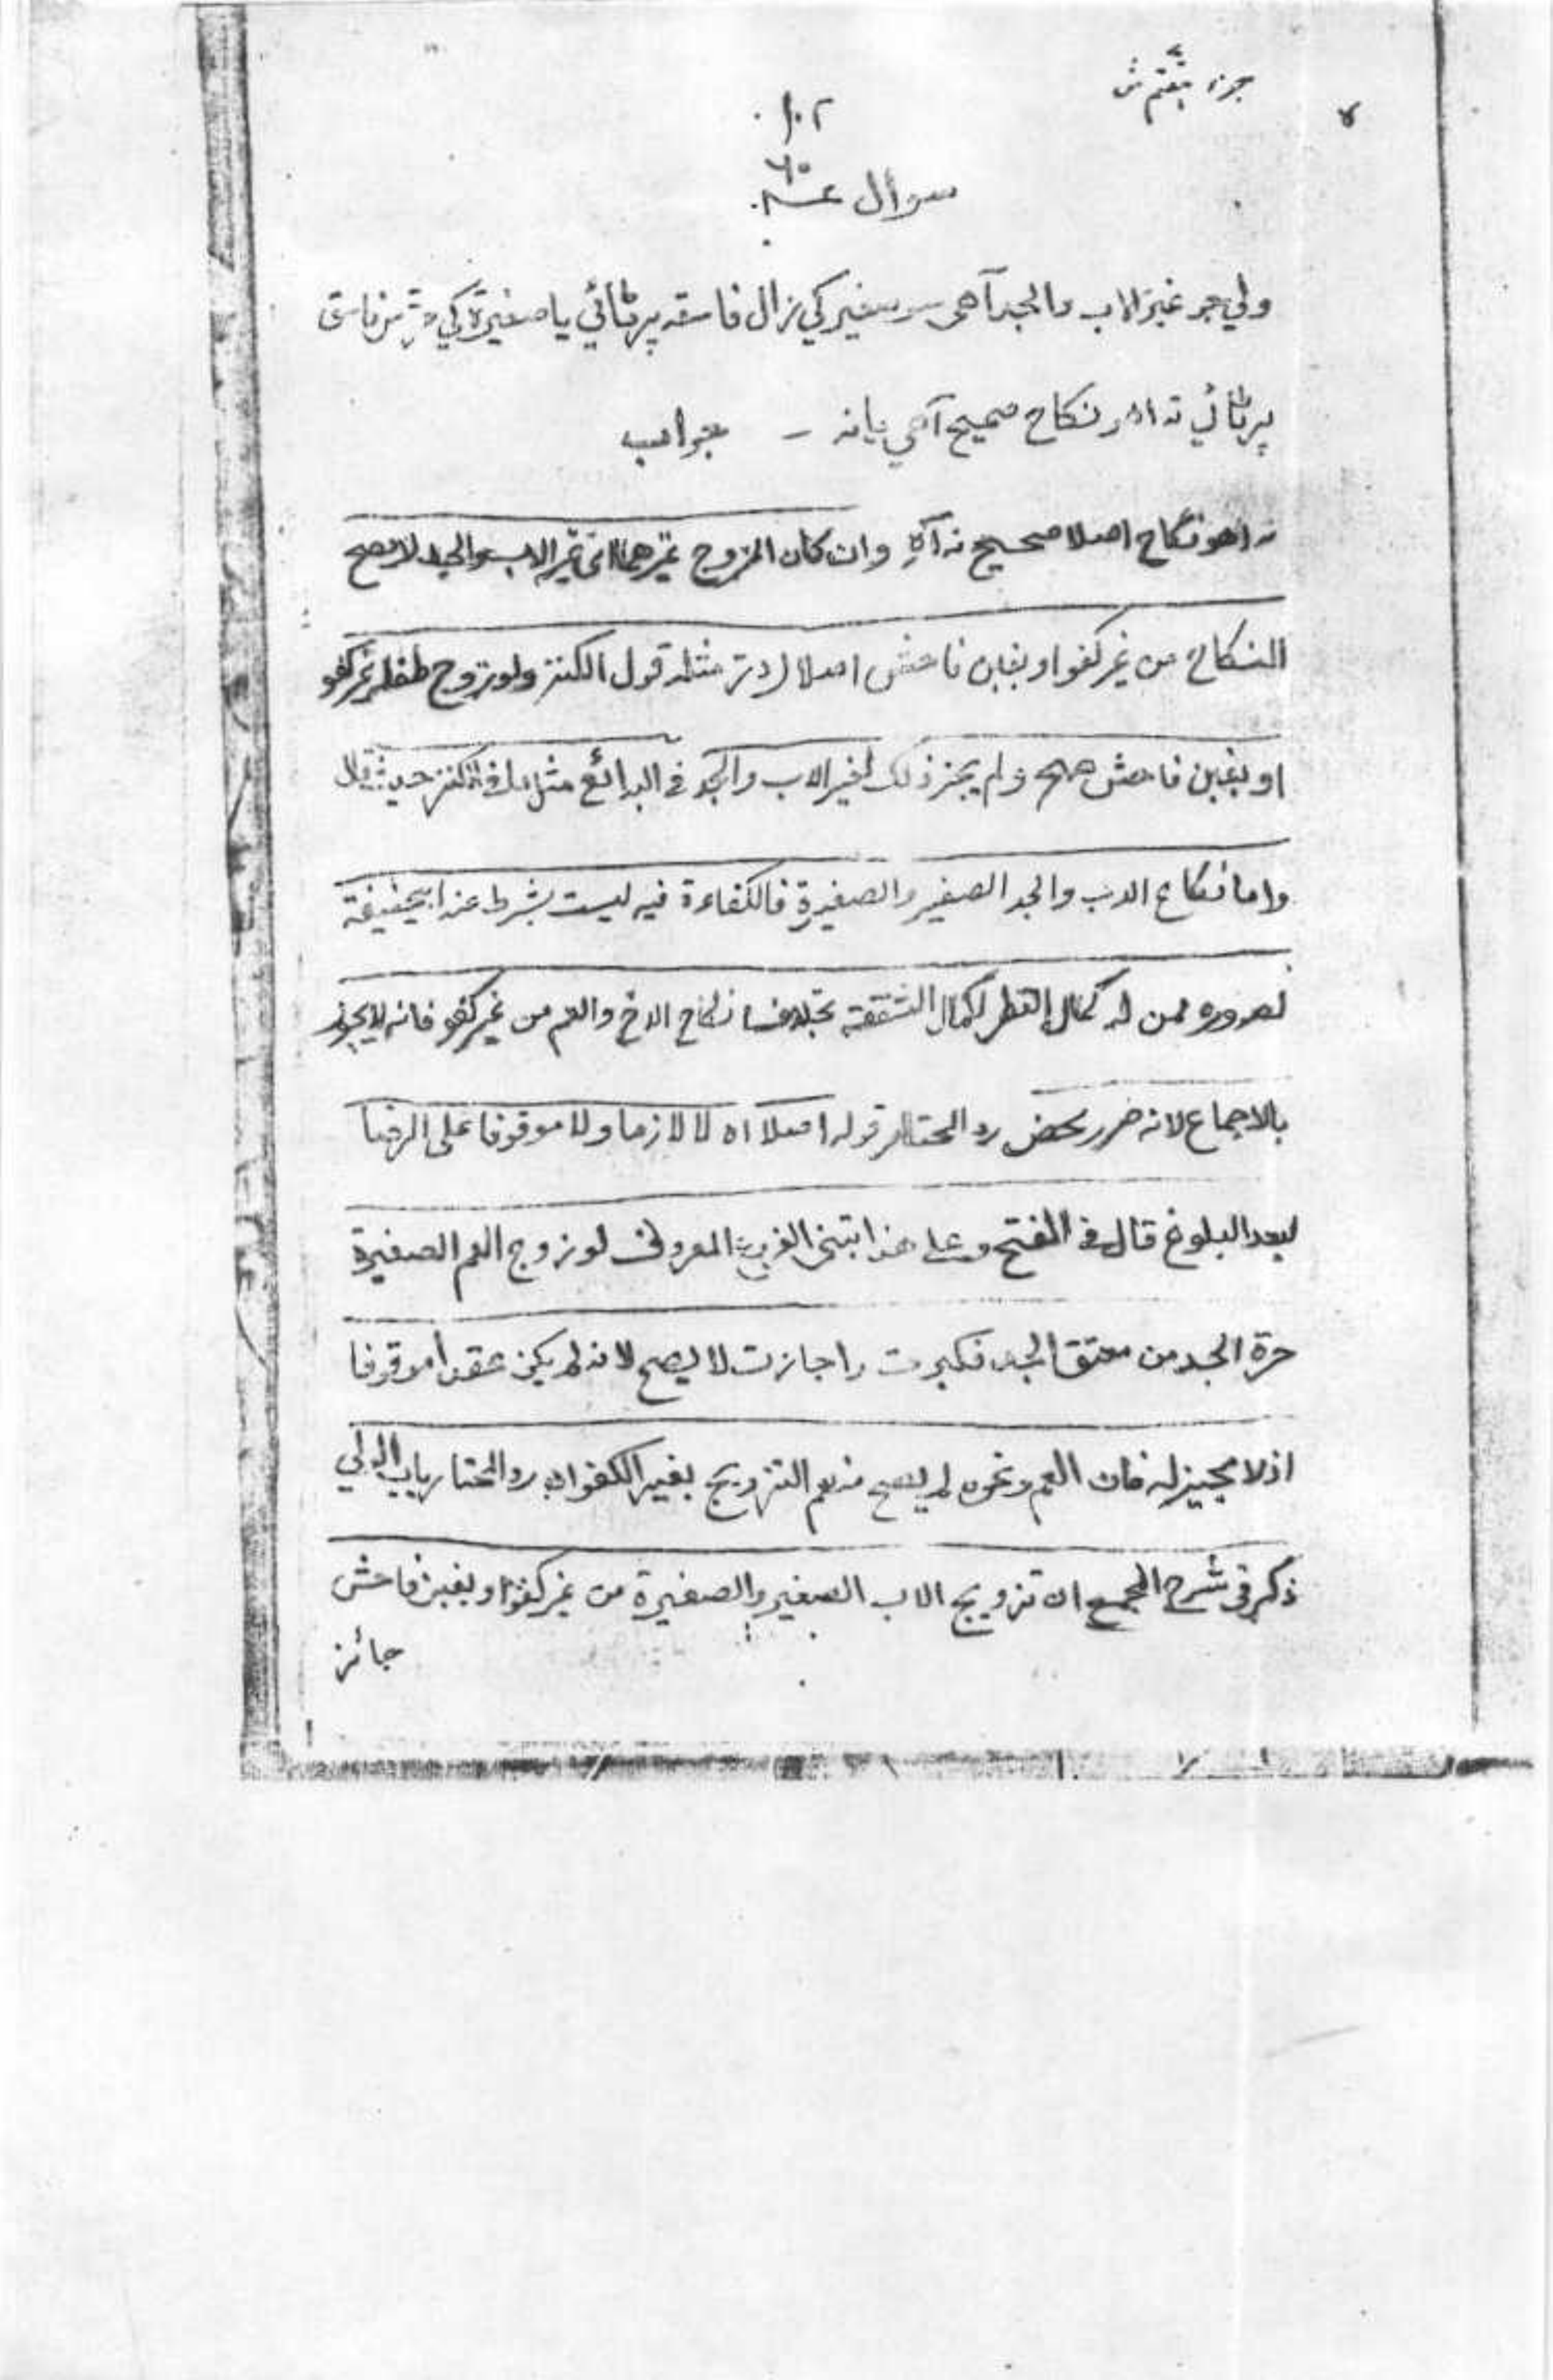 جزء
١٠٢
سوال
ولي جو غير الاب والجد آهي سو صغير کي زال فاسقه پرڻائي يا صغيرة کي فاسق
پرڻائي ته اهو نکاح صحيح آهي يا نه – جواب
ته اهو نکاح اصلا صحيح نه آهِ وان كان المزوج غيرهما اى غير الاب والجد لا يصح
النكاح من غير كفو او بغبن فاحش اصلا در مثله قول الكنز ولو زوج طفله غير كفو
او بغبن فاحش صح ولم يجز ذلك لغير الاب والجد فى البدائع مثل ما فى الكنز حيث قال
واما نكاح الاب والجد الصغير والصغيرة فالكفاءة فيه ليست بشرط عند ابيحنيفة
لصدوره ممن له كمال النظر لكمال الشفقة بخلاف نكاح الاخ والعم من غير كفو فانه لا يجوز
بالاجماع لانه ضرر محض رد المحتار قوله اصلا اه لا لازما ولا موقوفا على الرضا
بعد البلوغ قال فى الفتح وعلى هذا ابتنى الفرع المعروف لو زوج العم الصغيرة
حرة الجد من معتق الجد فكبرت واجازت لا يصح لانه لم يكن عقدا موقوفا
اذ لا مجيز له فان العم ونحوه لم يصح منهم التزويج بغير الكفو اه رد المحتار باب الولي
ذكر فى شرح المجمع ان تزويج الاب الصغير والصغيرة من غير كفو او بغبن فاحش
جائز